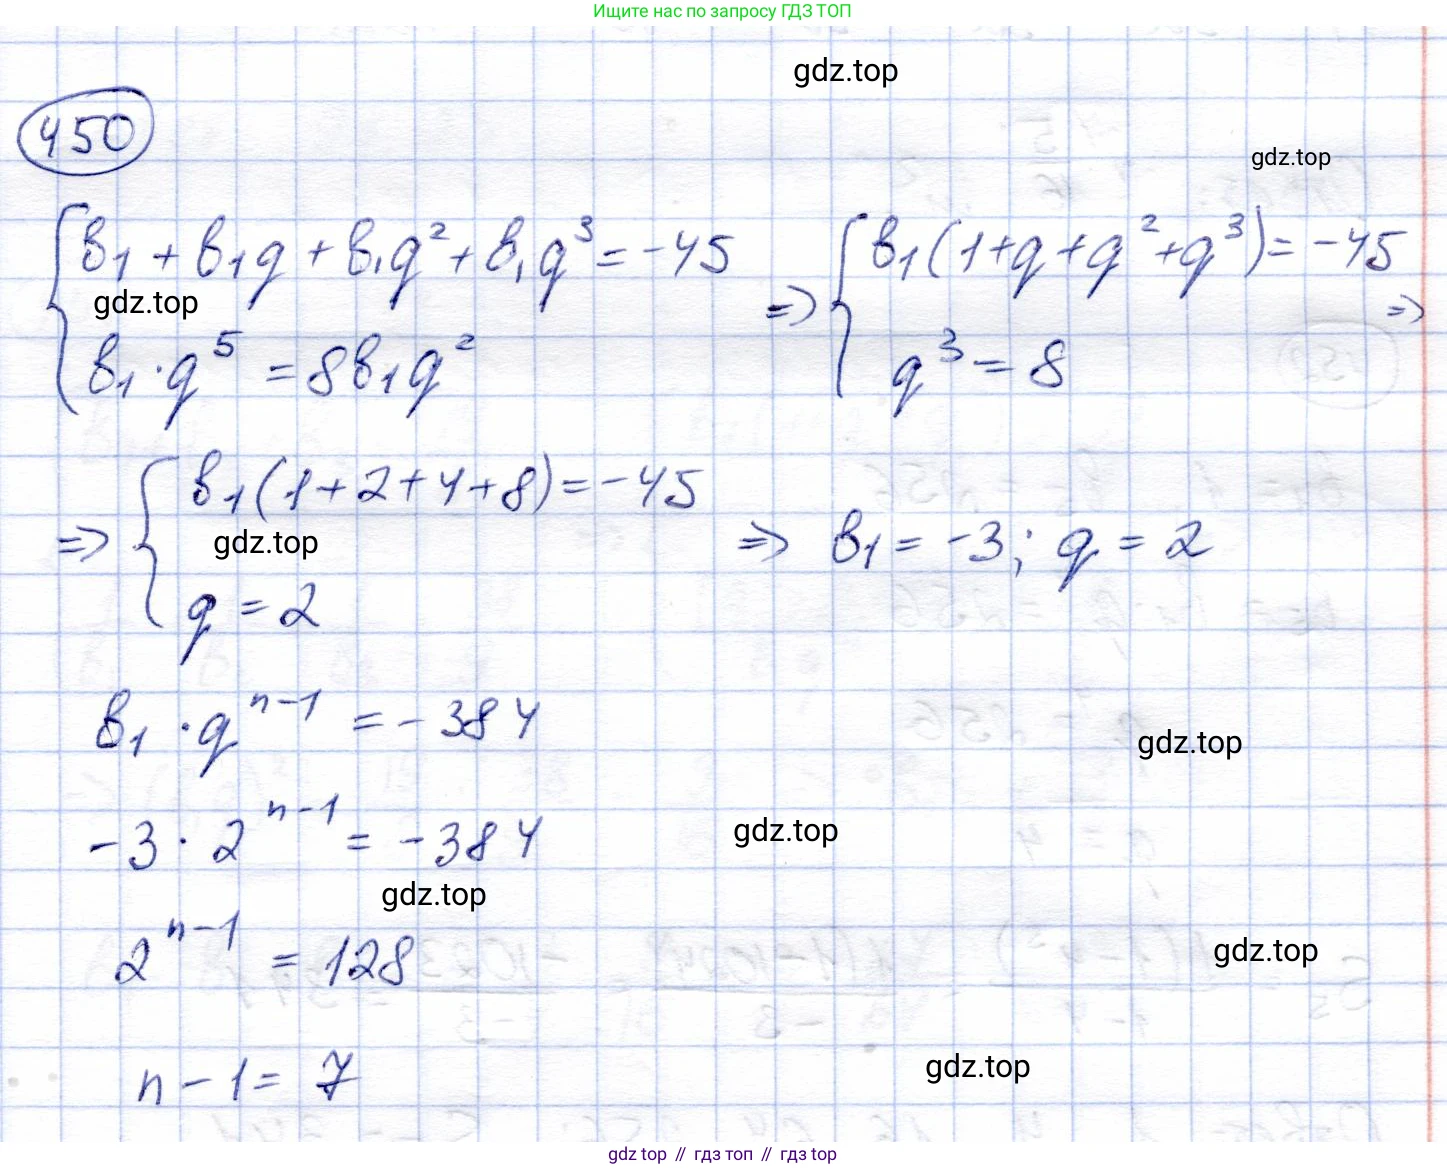 Ищите нас по запросу ГДЗ ТОП
gdz.top
450
gdz.top
{ b₁ + b₁q + b₁q² + b₁q³ = -45 => { b₁(1+q+q²+q³) = -45 =>
gdz.top
b₁·q⁵ = 8b₁q² q³ = 8
=> { b₁(1+2+4+8) = -45 => b₁ = -3; q = 2
gdz.top
q = 2
b₁·qⁿ⁻¹ = -384
gdz.top
-3·2ⁿ⁻¹ = -384
gdz.top
gdz.top
2ⁿ⁻¹ = 128
gdz.top
n-1 = 7
gdz.top
gdz top // гдз топ // гдз top